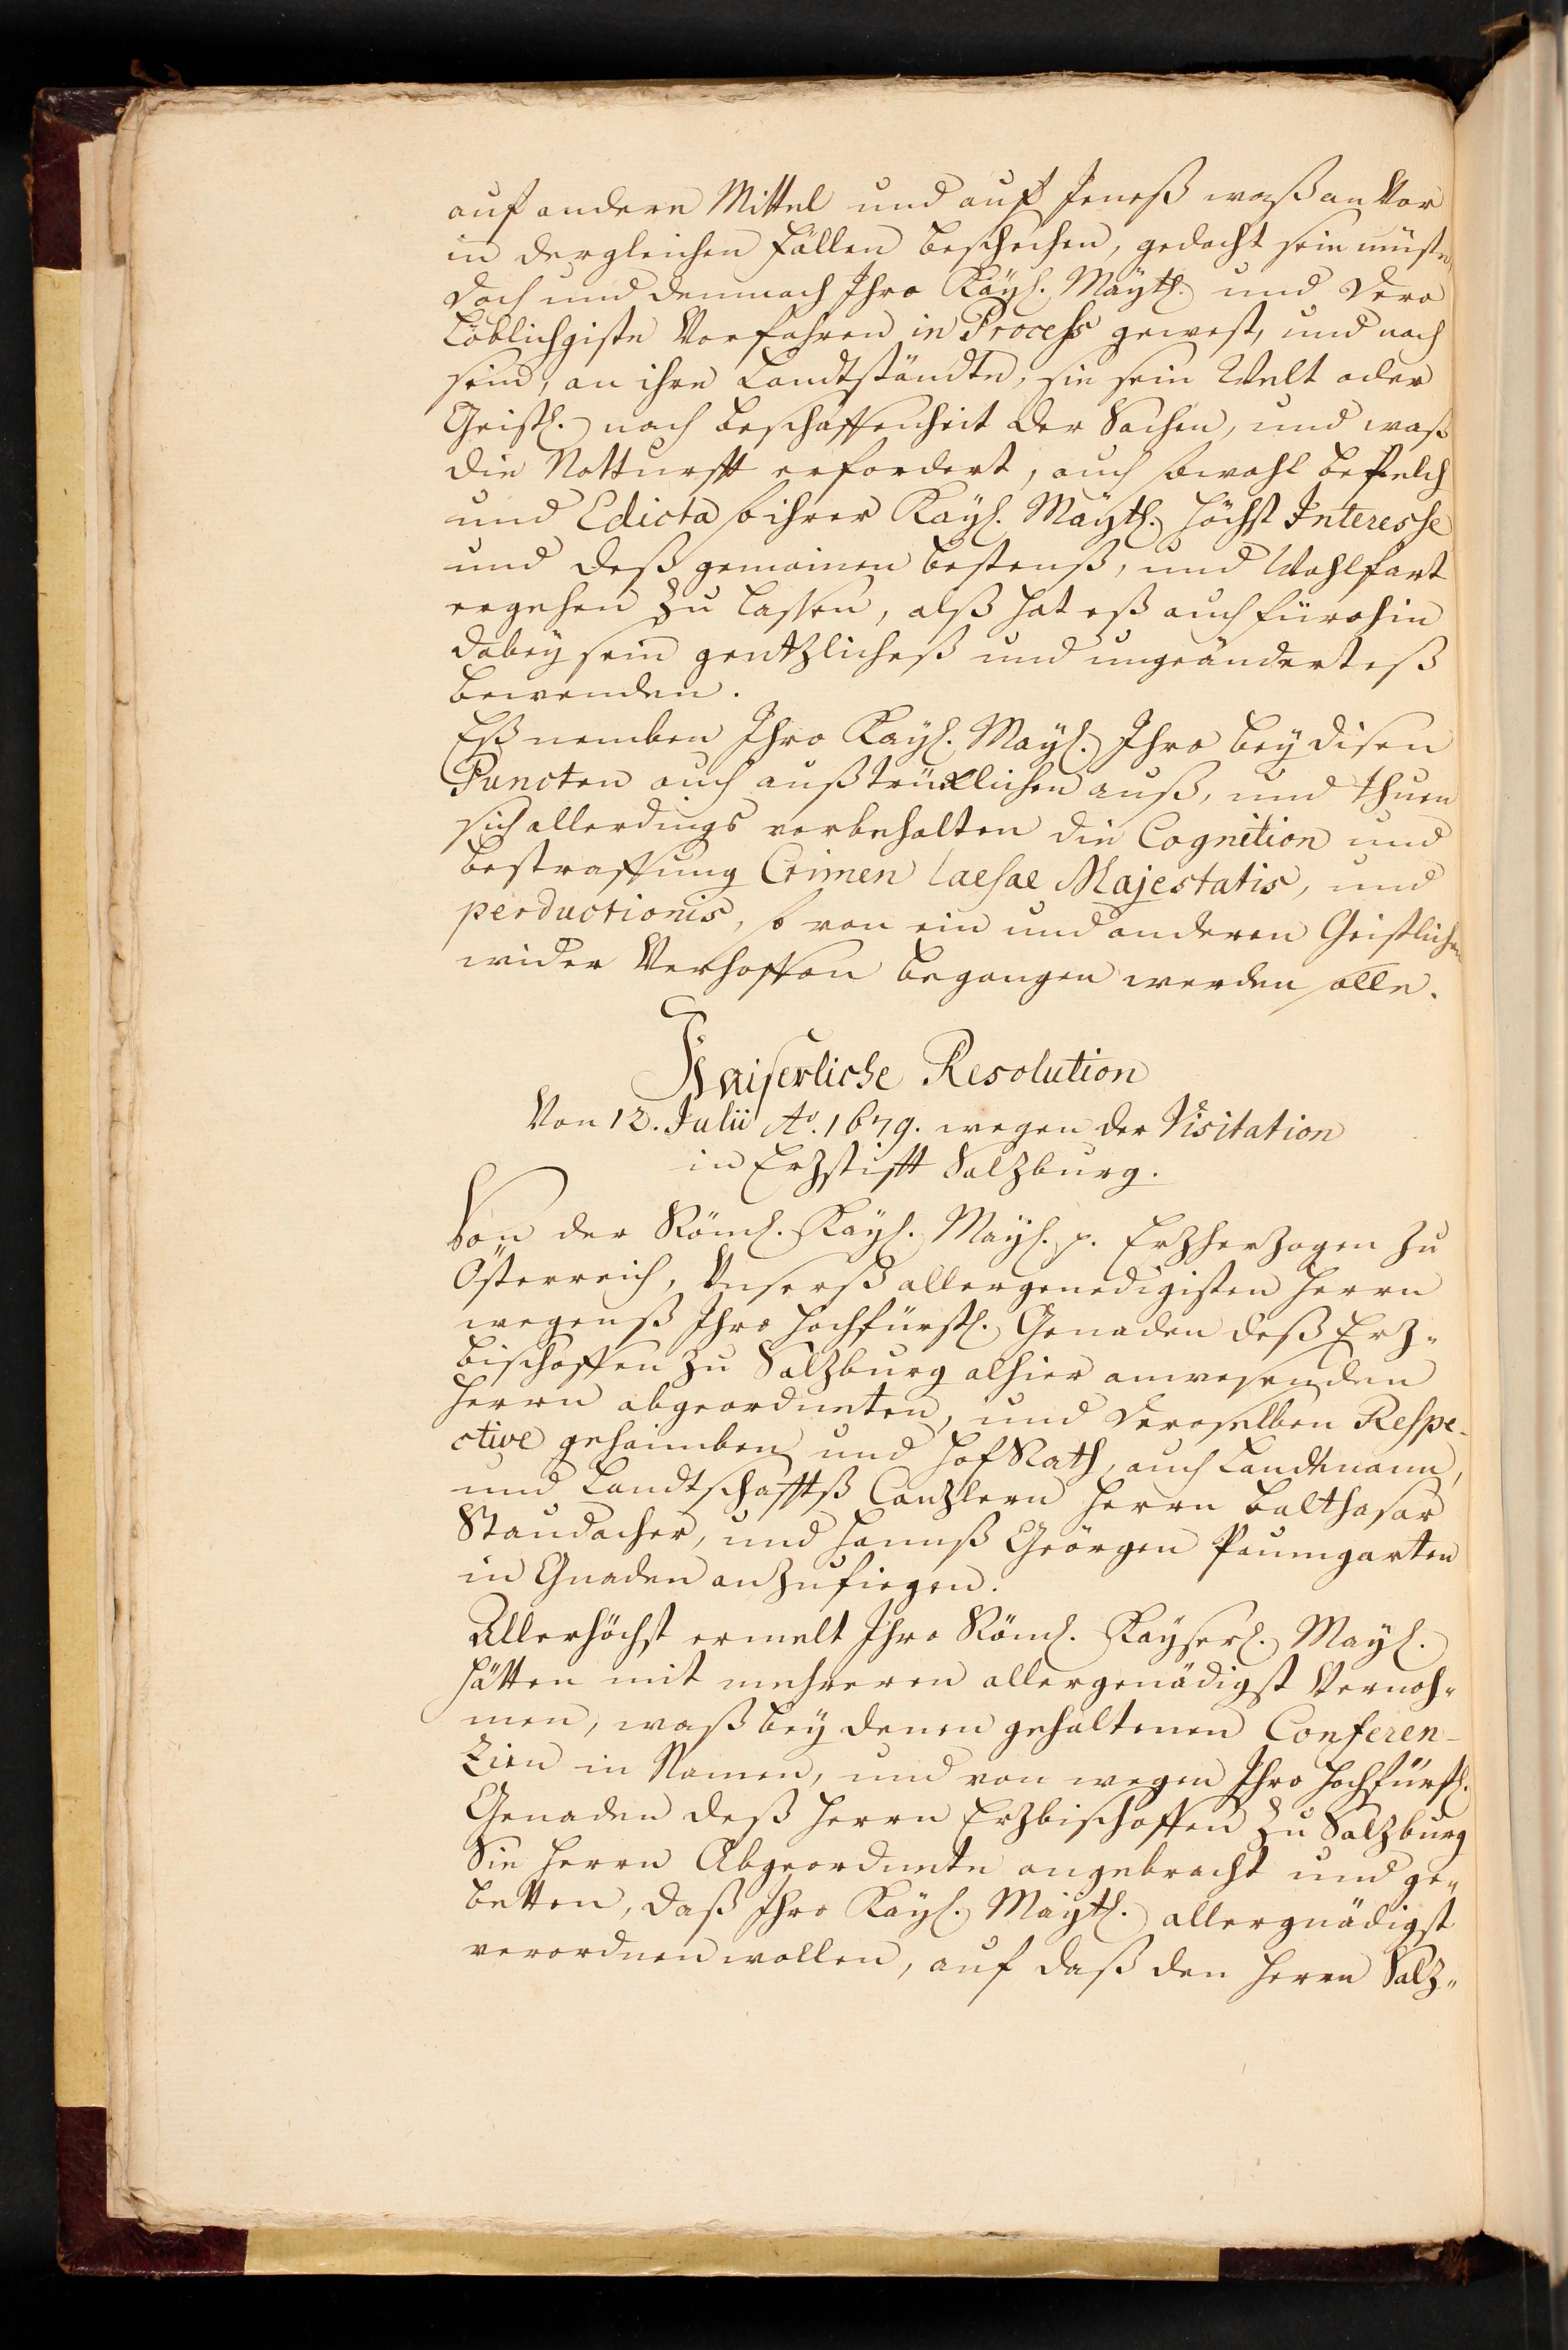 auf andere Mittel und auf Jeneß waß an Vor
in dergleichen fällen beschechen, gedacht sein müste,
doch und demnach Ihro Kayl. Maytl. und Dero
Löblichgiste Vorfahren in Process gewest, und noch
seind, an ihre Landtständte, sie sein Welt oder
Geistl. nach beschaffenheit der Sachen, und waß
die Notturfft erfordert, auch sowohl befelch
und Edicta so ihrer Kayl. Maytl. höchst Interesse
und deß gemainen bestenß, und Wohlfart
ergehen zu lassen, alß hat eß auch fürohin
dabey sein gentzlicheß und ungeänderteß
bewenden.
Eß nemben Ihro Kayl. Mayl. Ihro bey disen
Puncten auch außtrücklichen auß, und thuen
sich allerdings vorbehalten die Cognition und
bestraffung Crimen laesae Majestatis, und
perductionis, so von ein und anderen Geistlichen
wider Verhoffen begangen werden solle.
Kaiserliche Resolution
Von 12. Julii Ao. 1679. wegen der Visitation
in Erzstifft Salzburg.
Von der Röml. Kayl. Mayl. p. Erzherzogen zu
Österreich, Unserß allergenedigisten Herrn
wegenß Ihro Hochfürstl. Genaden deß Erz-
bischoffen zu Salzburg alhier anwesenden
Herrn abgeordneten, und deroselben Respe-
ctive gehaimben und Hof Rath, auch Landtmann,
und Landtschafftß Canzlern Herrn Balthasar
Staudacher, und Hannß Geörgen Paumgarten
in Gnaden anzufiegen.
Allerhöchst ermelt Ihro Röml. Kayserl. Mayl.
hätten mit mehreren allergenädigst Vernoh-
men, waß bey denen gehaltenen Conferen-
zien in Namen, und von wegen Ihro Hochfürstl.
Genaden deß Herrn Erzbischoffen zu Salzburg
Sie Herrn Abgeordnete angebracht und ge-
betten, daß Ihro Kayl. Maytl. allergnädigst
verordnen wollen, auf daß den Herrn Salz-